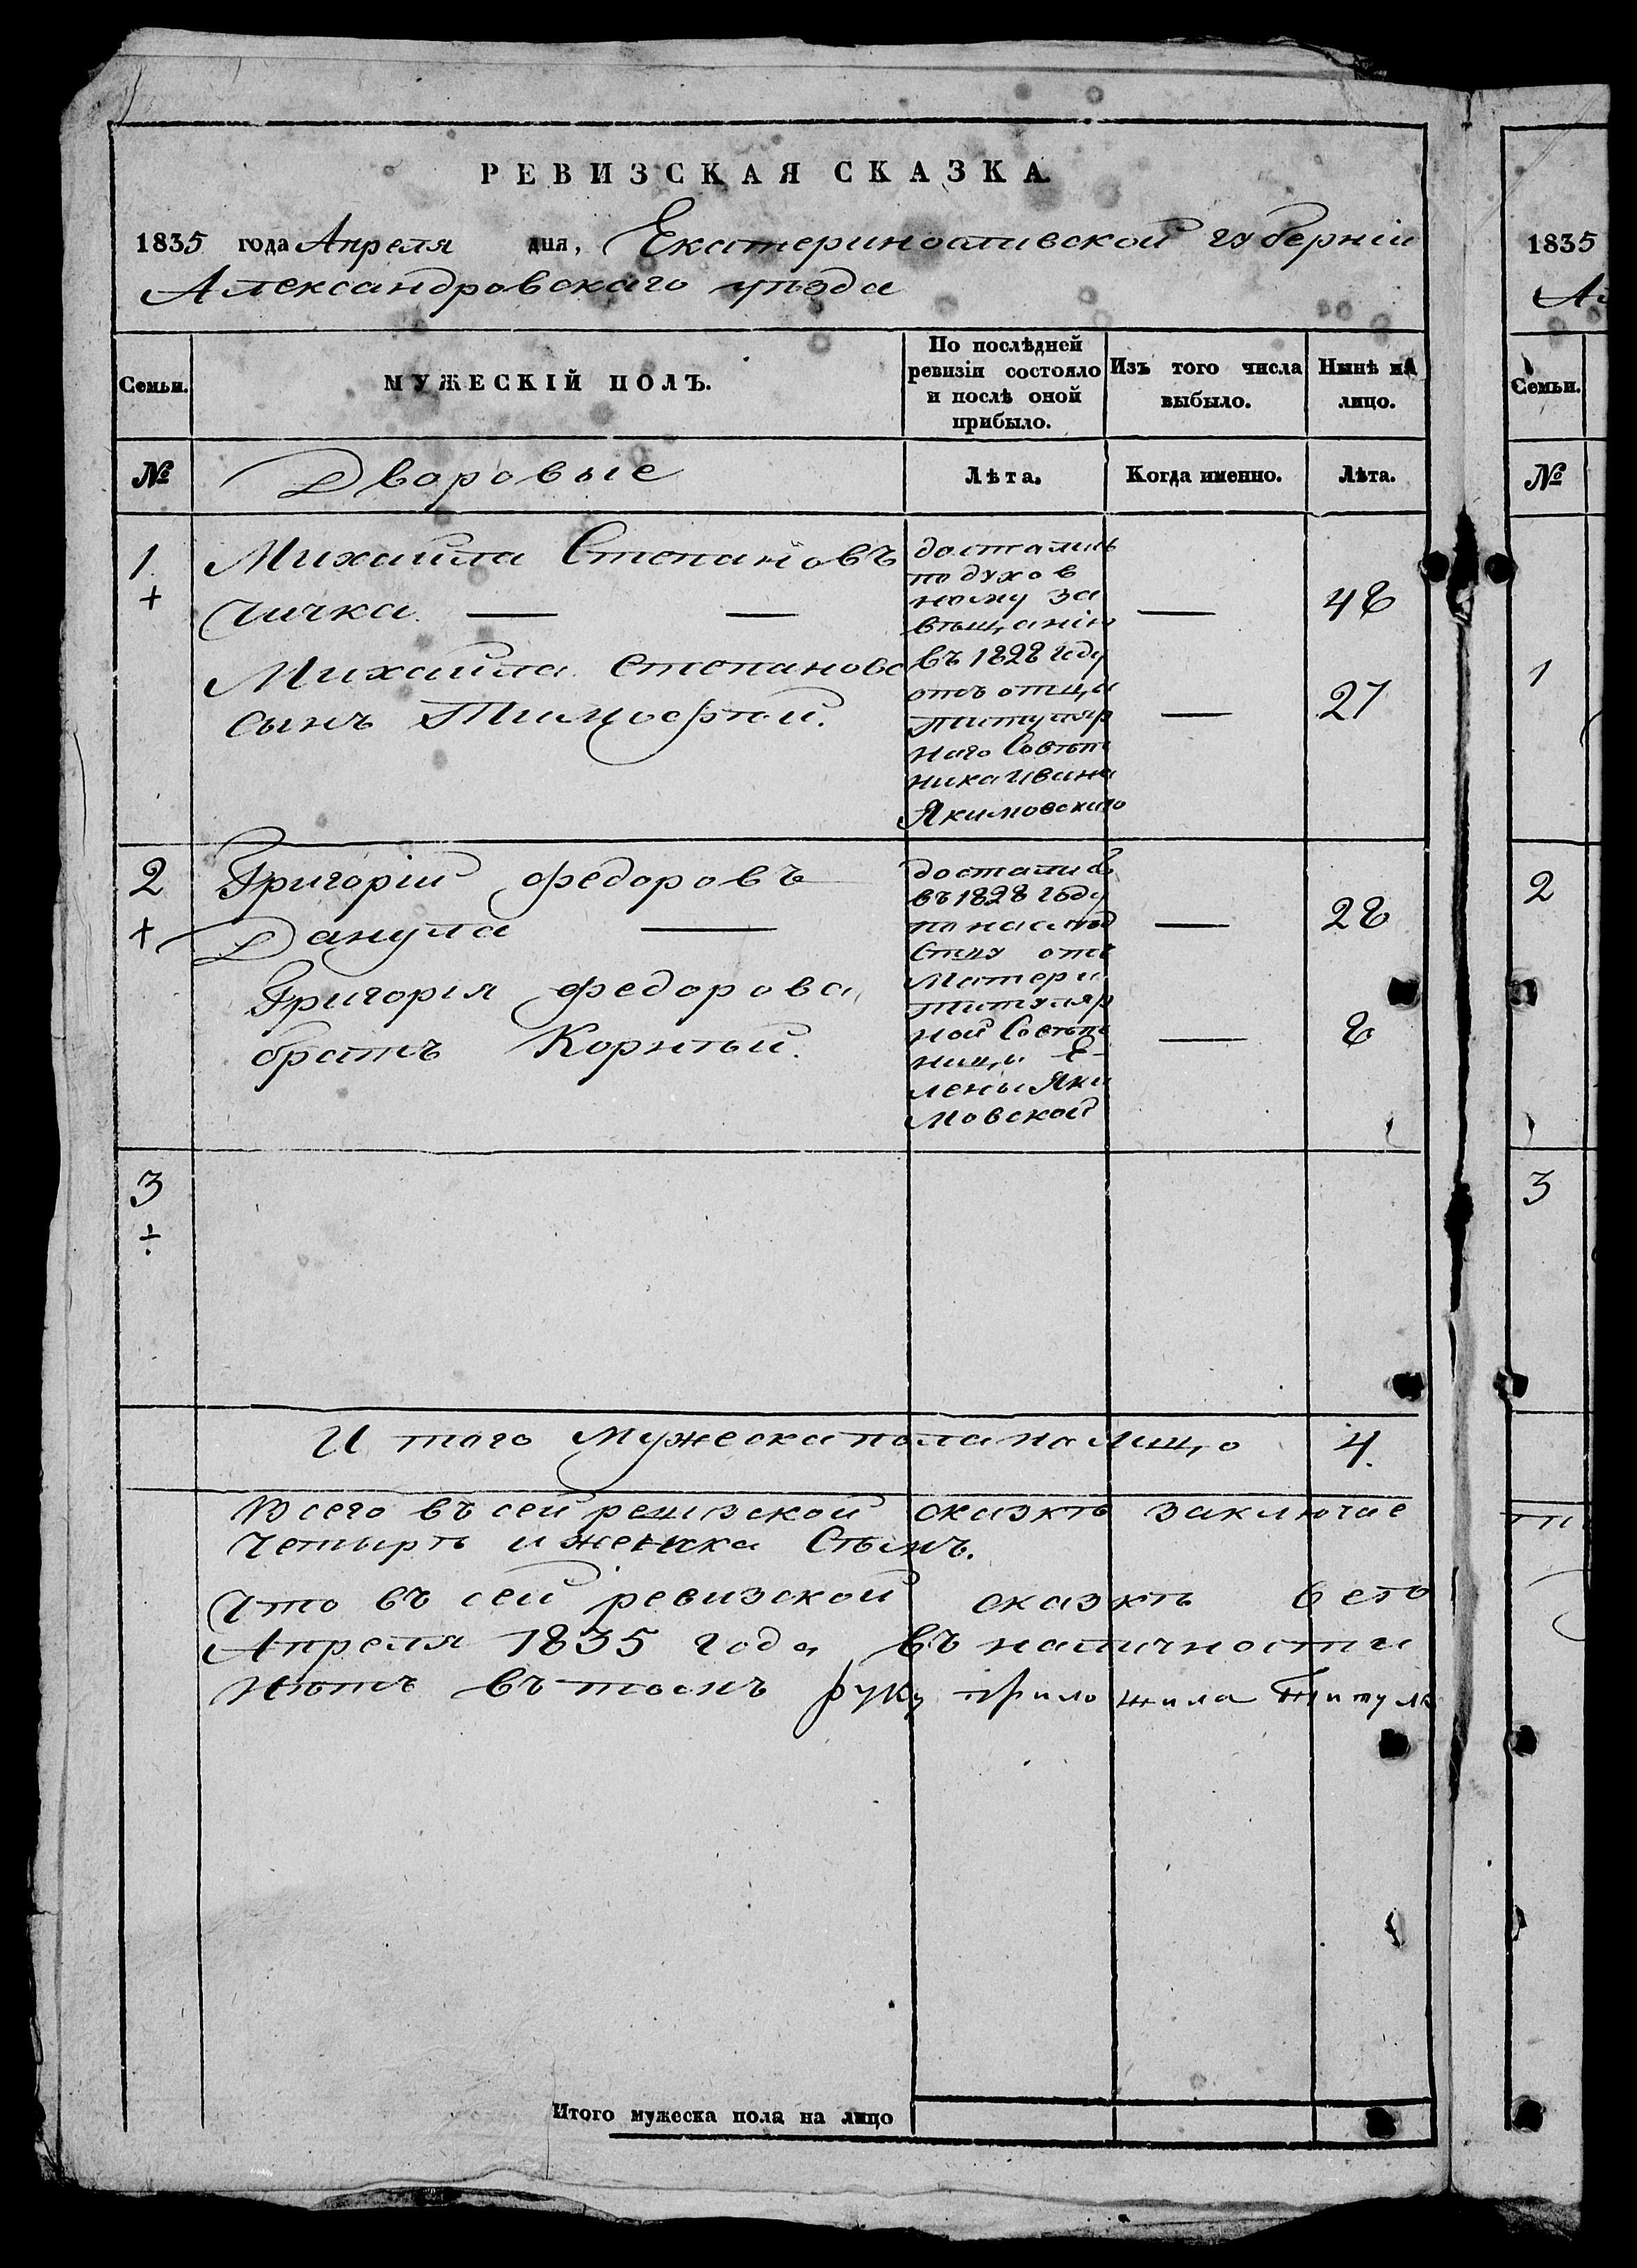 РЕВИЗСКАЯ СКАЗКА
1835 года Апреля дня, Екатеринославской губерніи
Александровскаго уѣзда
Семьи.
МУЖЕСКІЙ ПОЛЪ.
По послѣдней
ревизіи состояло
и послѣ оной
прибыло.
Изъ того числа
выбыло.
Нынѣ на
лицо.
№
Дворовые
Лѣта.
Когда именно.
Лѣта.
1
+
Михайла Степановъ
Чичка. — —
—
48
Михайла Степанова
сынъ Тимофѣй.
—
27
достались
по духов
ному за
вѣщанію
въ 1828 году
отъ отца
Титуляр
наго Совѣт
ника Ивана
Якимовскаго
2
+
Григорій Федоровъ
Данула —
—
28
Григорія Федорова
братъ Корнѣй.
—
8
достались
въ 1828 году
по наслѣд
ству отъ
Матери
титуляр
ной Совѣт
ницы Е-
лены Яки
мовской
3
÷
И того Мужеска пола на лицо 4.
Всего въ сей ревизской сказкѣ заключае
четырѣ и женска Сѣмъ.
Что въ сей ревизской сказкѣ
Апреля 1835 года въ наличности
нѣтъ въ томъ руку приложила Титуля
Итого мужеска пола на лицо
1835
Ал
Семьи.
№
1
2
3